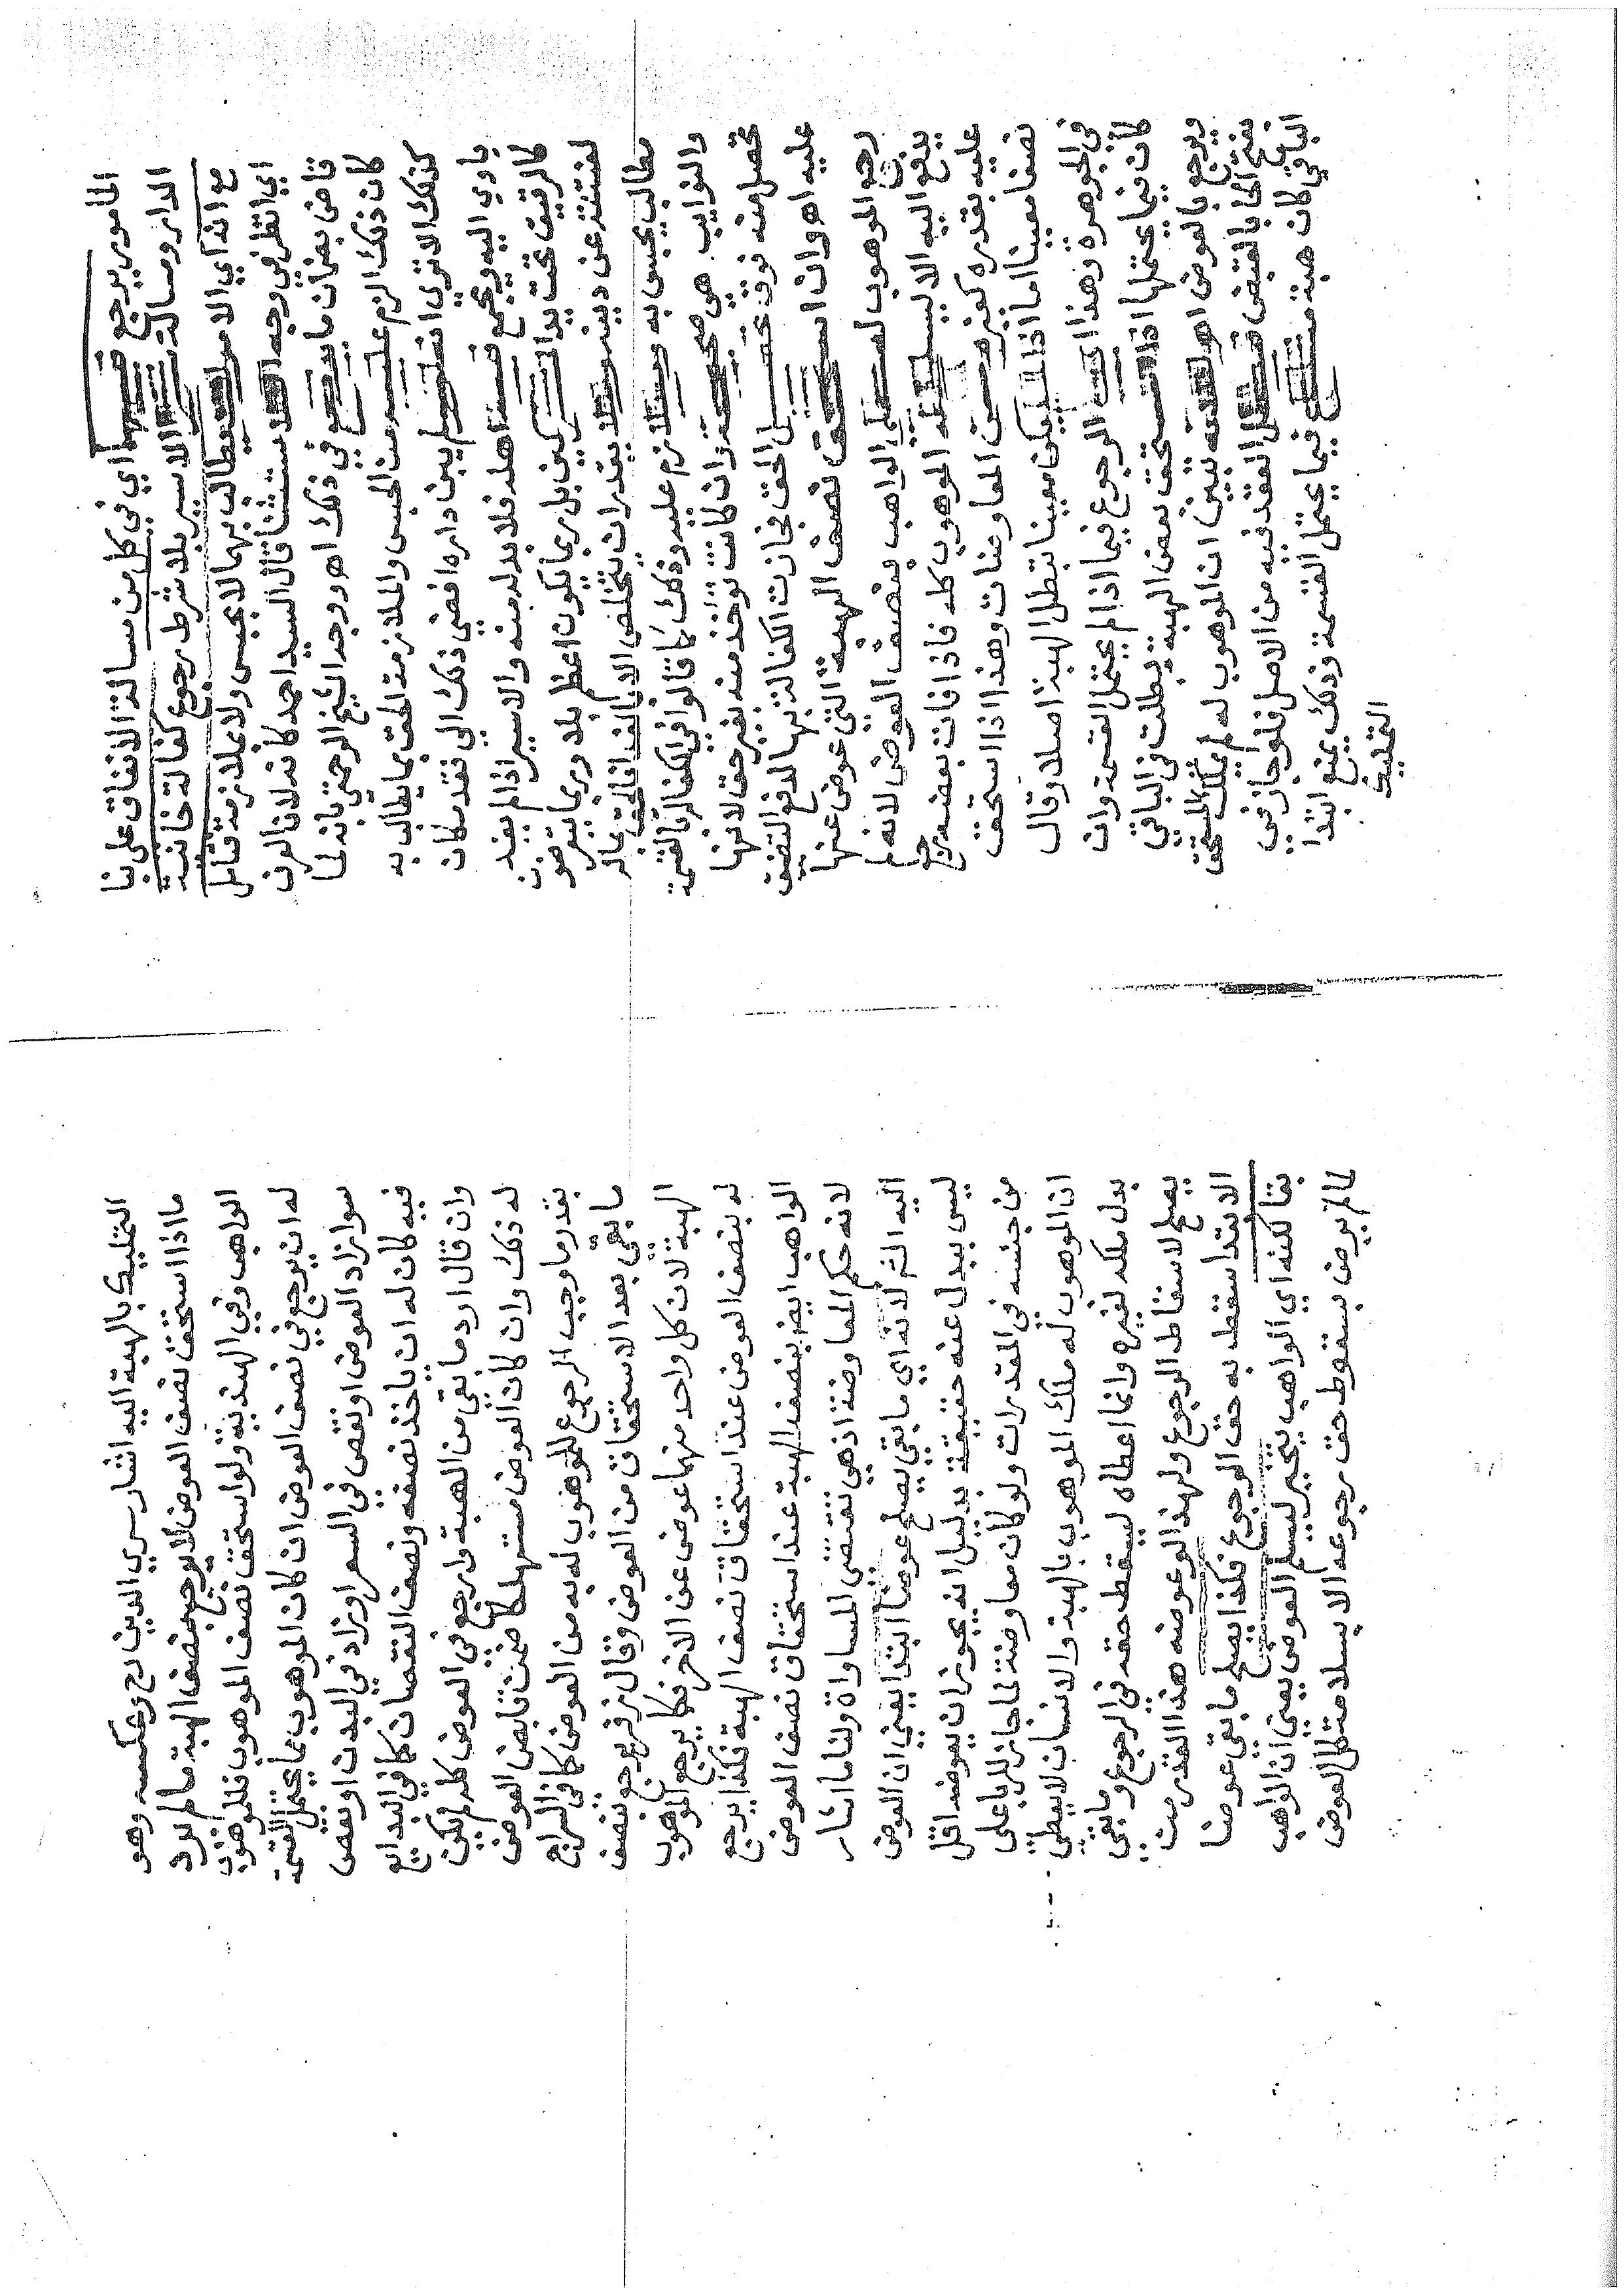 المأمور يرجع فيهما اي في كل من مسألة الانفاق على بنا
الدار ومسألة شراء الاسير بلا شرط رجوع كفالة خانية
مع انه اي الامر لا يطالب بهما لا بحبس ولا بملازمة فتأمل
اي انظر في وجه الاستثنا قال السيد احمد كانه لانا لوان
قاضي بغيران ما يدفعه في ذلك اهـ ووجد الشيخ الرحمتي بانه لما
كان ذلك الزم عليه من الحبس والملازمة الحق بما يطالب به
كذلك الا تري انه لو لم يبن داره افضي ذلك الي فقد مكان
ياوي اليه ويجمع فيه اهله فلا بد له منه والاسير اذا لم يفد
كالرقيق تحت يد المشركين بل ربما يكون اعظم بلا وربما يتعرضون
لفتنته عن دينه ولا يقدر ان يتخلص الا بالفدا فالحق بمال
يطالب يحبس به ويلازم عليه وذلك كما قالوا في الكفالة بالقسمة
والنوايب هي صحيحة وان كانت توخذ منه بغير حق لانها
تحصل منه فوق تحصيل الحق فجازت الكفالة بها لدفع التضييق
عليه اهـ وان استحق نصف الهبة التي عوض عنها
رجع الموهوب له علي الواهب بنصف العوض لانه لم
يدفع اليه الا ليسلم له الموهوب كله فاذا فات بعضه رجع
عليه بقدره كغيره من المعاوضات وهذا اذا استحق
نصفا معينا اما اذا لم يكن معينا تبطل الهبة اصلا وقال
في الجوهرة وهذا اي الرجوع فيما اذا لم يحتمل القسمة وان
كان فيما يحتملها اذا استحق بعض الهبة بطلت في الباقي
ويرجع بالعوض اهـ لانه تبين ان الموهوب له لم يملك المستحق
بفتح الحا بالقبض فبطل العقد فيه من الاصل فلو جاز في
الباقي كان هبة مشاع فيما يحتمل القسمة وذلك يمنع ابتدا
التمليك
التمليك بالهبة اليه اشار سري الدين اهـ ح وعكسه وهو
ما اذا استحق نصف العوض لا يرجع بنصف الهبة ما لم يرد
الواهب وفي الهندية ولو استحق نصف الموهوب فللموهوب
له ان يرجع في نصف العوض ان كان الموهوب مما يحتمل القسمة
سوا زاد العوض او نقص في السعر او زاد في البدن او نقص
فيه كان له ان ياخذ نصفه ونصف النقصان كما في البدايع
وان قال ارد ما بقي من الهبة وارجع في العوض كله لم يكن
له ذلك وان كان العوض مستهلكا ضمن قابض العوض
بقدر ما وجب الرجوع للموهوب له به من العوض كما في السراج
ما بقي بعد الاستحقاق من العوض وقال زفر يرجع بنصف
الهبة لان كل واحد منهما عوض عن الاخر فكما يرجع الموهوب
له بنصف العوض عند استحقاق نصف الهبة فكذا يرجع
الواهب ايضا بنصف الهبة عند استحقاق نصف العوض
لانه حكم المعاوضة اذ هي تقتضي المساواة ولنا ما اشار
اليه الش لانه اي ما بقي يصلح عوضا ابتدا يعني ان العوض
ليس ببدل عنه حقيقة بدليل انه يجوز ان يعوضه اقل
من جنسه في المقدرات ولو كان معاوضة لما جاز للربا علي
ان الموهوب له ملك الموهوب بالهبة والانسان لا يعطي
بدل ملكه لغيره وانما اعطاه ليسقط حقه في الرجوع وما بقي
يصلح لاسقاط الرجوع ولهذا لو عوضه هذا القدر من
الابتدا سقط به حق الرجوع فكذا يصلح ما بقي عوضا
بقا لكنه اي الواهب يتخير ليسلم العوض يعني ان الواهب
لما لم يرض بسقوط حق رجوعه الا بسلامة كل العوض